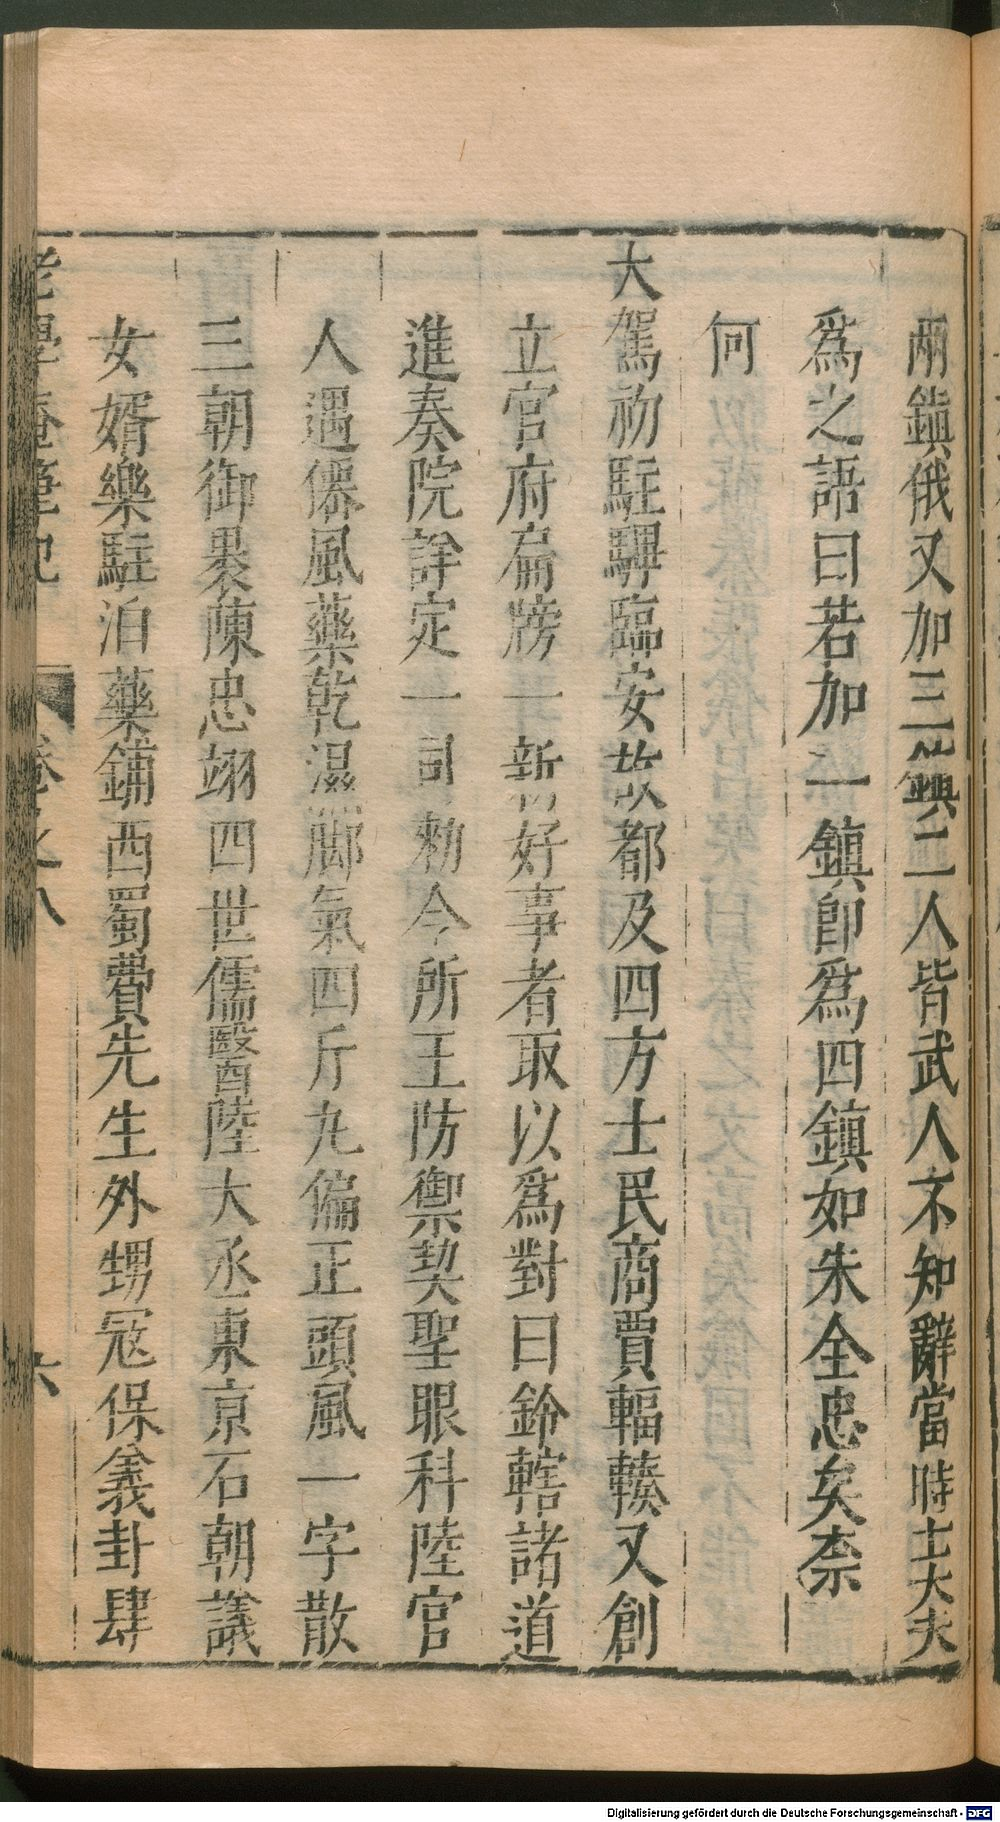 兩鎭俄又加三鎭二人皆武人不知辭當時士大夫
爲之語曰若加一鎭卽爲四鎭如朱全忠矣柰
何
大駕初駐驆臨安故都及四方士民商賈輻輳又創
立官府扁牓一新好事者取以爲對曰鈐轄諸道
進奏院詳定一司勅令所王防禦契聖眼科陸官
人遇僊風藥乾濕脚氣四斤丸偏正頭風一字散
三朝御裹陳忠翊四世儒醫陸大丞東京石朝議
女婿樂駐泊藥鋪西蜀費先生外甥冦保義卦肆
老學庵筆記 卷之八 六
Digitalisierung gefördert durch die Deutsche Forschungsgemeinschaft - DFG